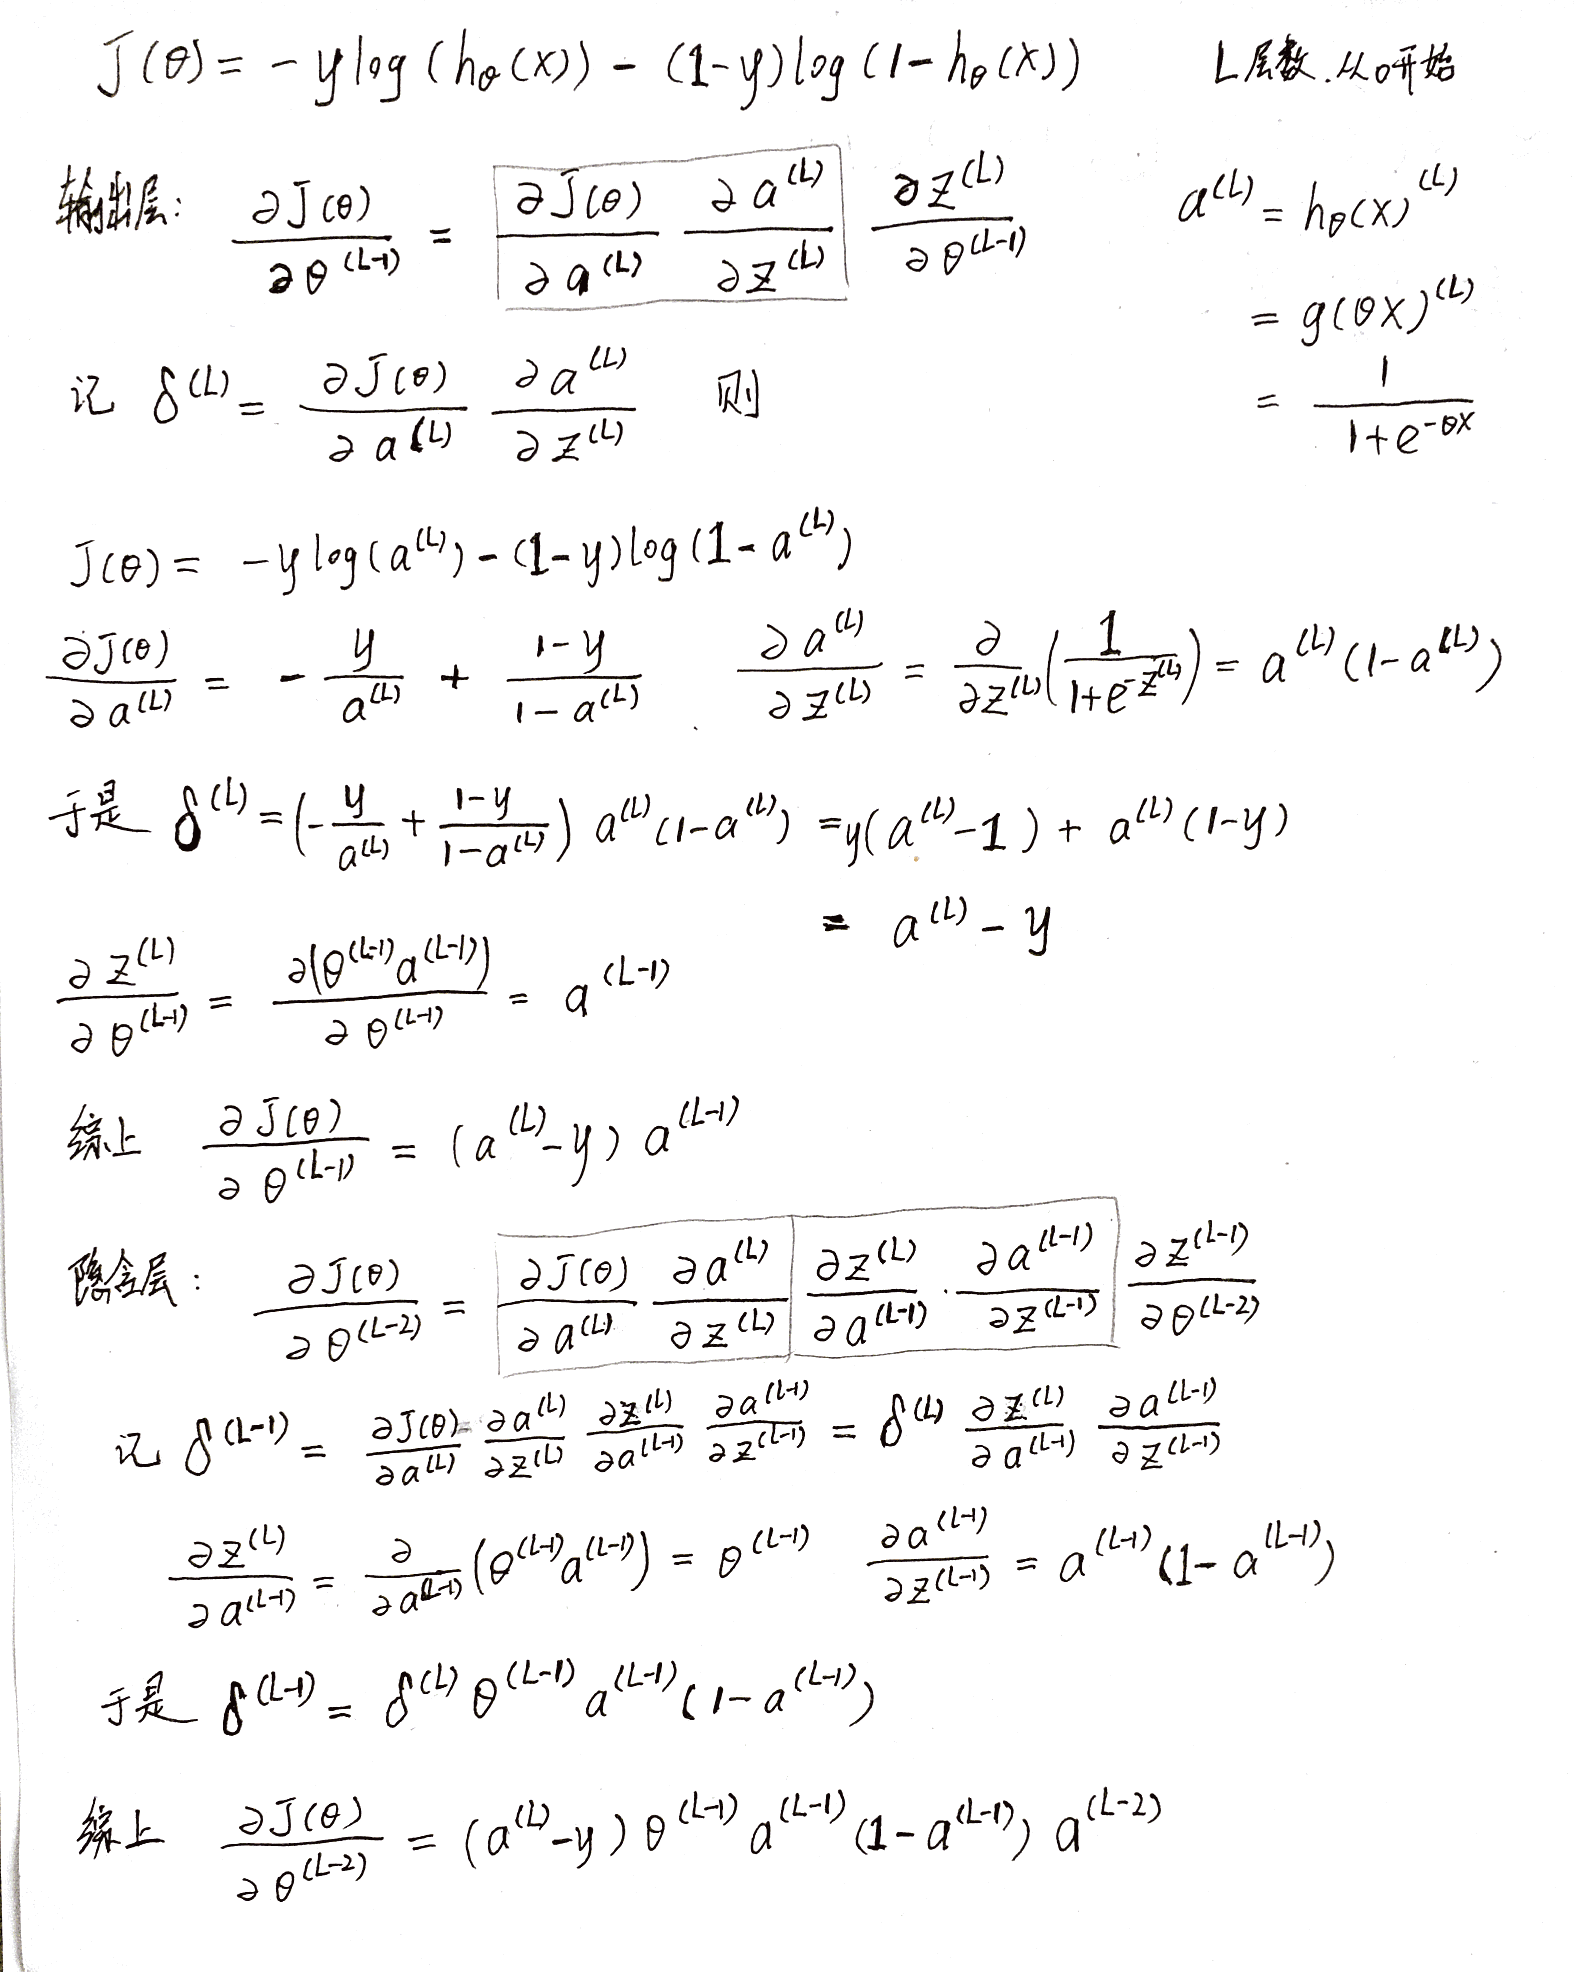 J(θ) = - y log (hθ(x)) - (1-y) log (1 - hθ(x))    L层数.从0开始
输出层: ∂J(θ)/∂θ^(L-1) = ∂J(θ)/∂a^(L) ∂a^(L)/∂z^(L) ∂z^(L)/∂θ^(L-1)    a^(L) = hθ(x)^(L)
= g(θx)^(L)
记 δ^(L) = ∂J(θ)/∂a^(L) ∂a^(L)/∂z^(L) 则    = 1/(1+e^(-θx))
J(θ) = -y log(a^(L)) - (1-y) log(1 - a^(L))
∂J(θ)/∂a^(L) = - y/a^(L) + (1-y)/(1-a^(L))    ∂a^(L)/∂z^(L) = ∂/∂z^(L) (1/(1+e^(-z^(L)))) = a^(L) (1-a^(L))
于是 δ^(L) = (- y/a^(L) + (1-y)/(1-a^(L))) a^(L) (1-a^(L)) = y(a^(L)-1) + a^(L) (1-y)
= a^(L) - y
∂z^(L)/∂θ^(L-1) = ∂(θ^(L-1) a^(L-1))/∂θ^(L-1) = a^(L-1)
综上 ∂J(θ)/∂θ^(L-1) = (a^(L) - y) a^(L-1)
隐含层: ∂J(θ)/∂θ^(L-2) = ∂J(θ)/∂a^(L) ∂a^(L)/∂z^(L) ∂z^(L)/∂a^(L-1) · ∂a^(L-1)/∂z^(L-1) ∂z^(L-1)/∂θ^(L-2)
记 δ^(L-1) = ∂J(θ)/∂a^(L) ∂a^(L)/∂z^(L) ∂z^(L)/∂a^(L-1) ∂a^(L-1)/∂z^(L-1) = δ^(L) ∂z^(L)/∂a^(L-1) ∂a^(L-1)/∂z^(L-1)
∂z^(L)/∂a^(L-1) = ∂/∂a^(L-1) (θ^(L-1) a^(L-1)) = θ^(L-1)    ∂a^(L-1)/∂z^(L-1) = a^(L-1) (1 - a^(L-1))
于是 δ^(L-1) = δ^(L) θ^(L-1) a^(L-1) (1 - a^(L-1))
综上 ∂J(θ)/∂θ^(L-2) = (a^(L) - y) θ^(L-1) a^(L-1) (1 - a^(L-1)) a^(L-2)